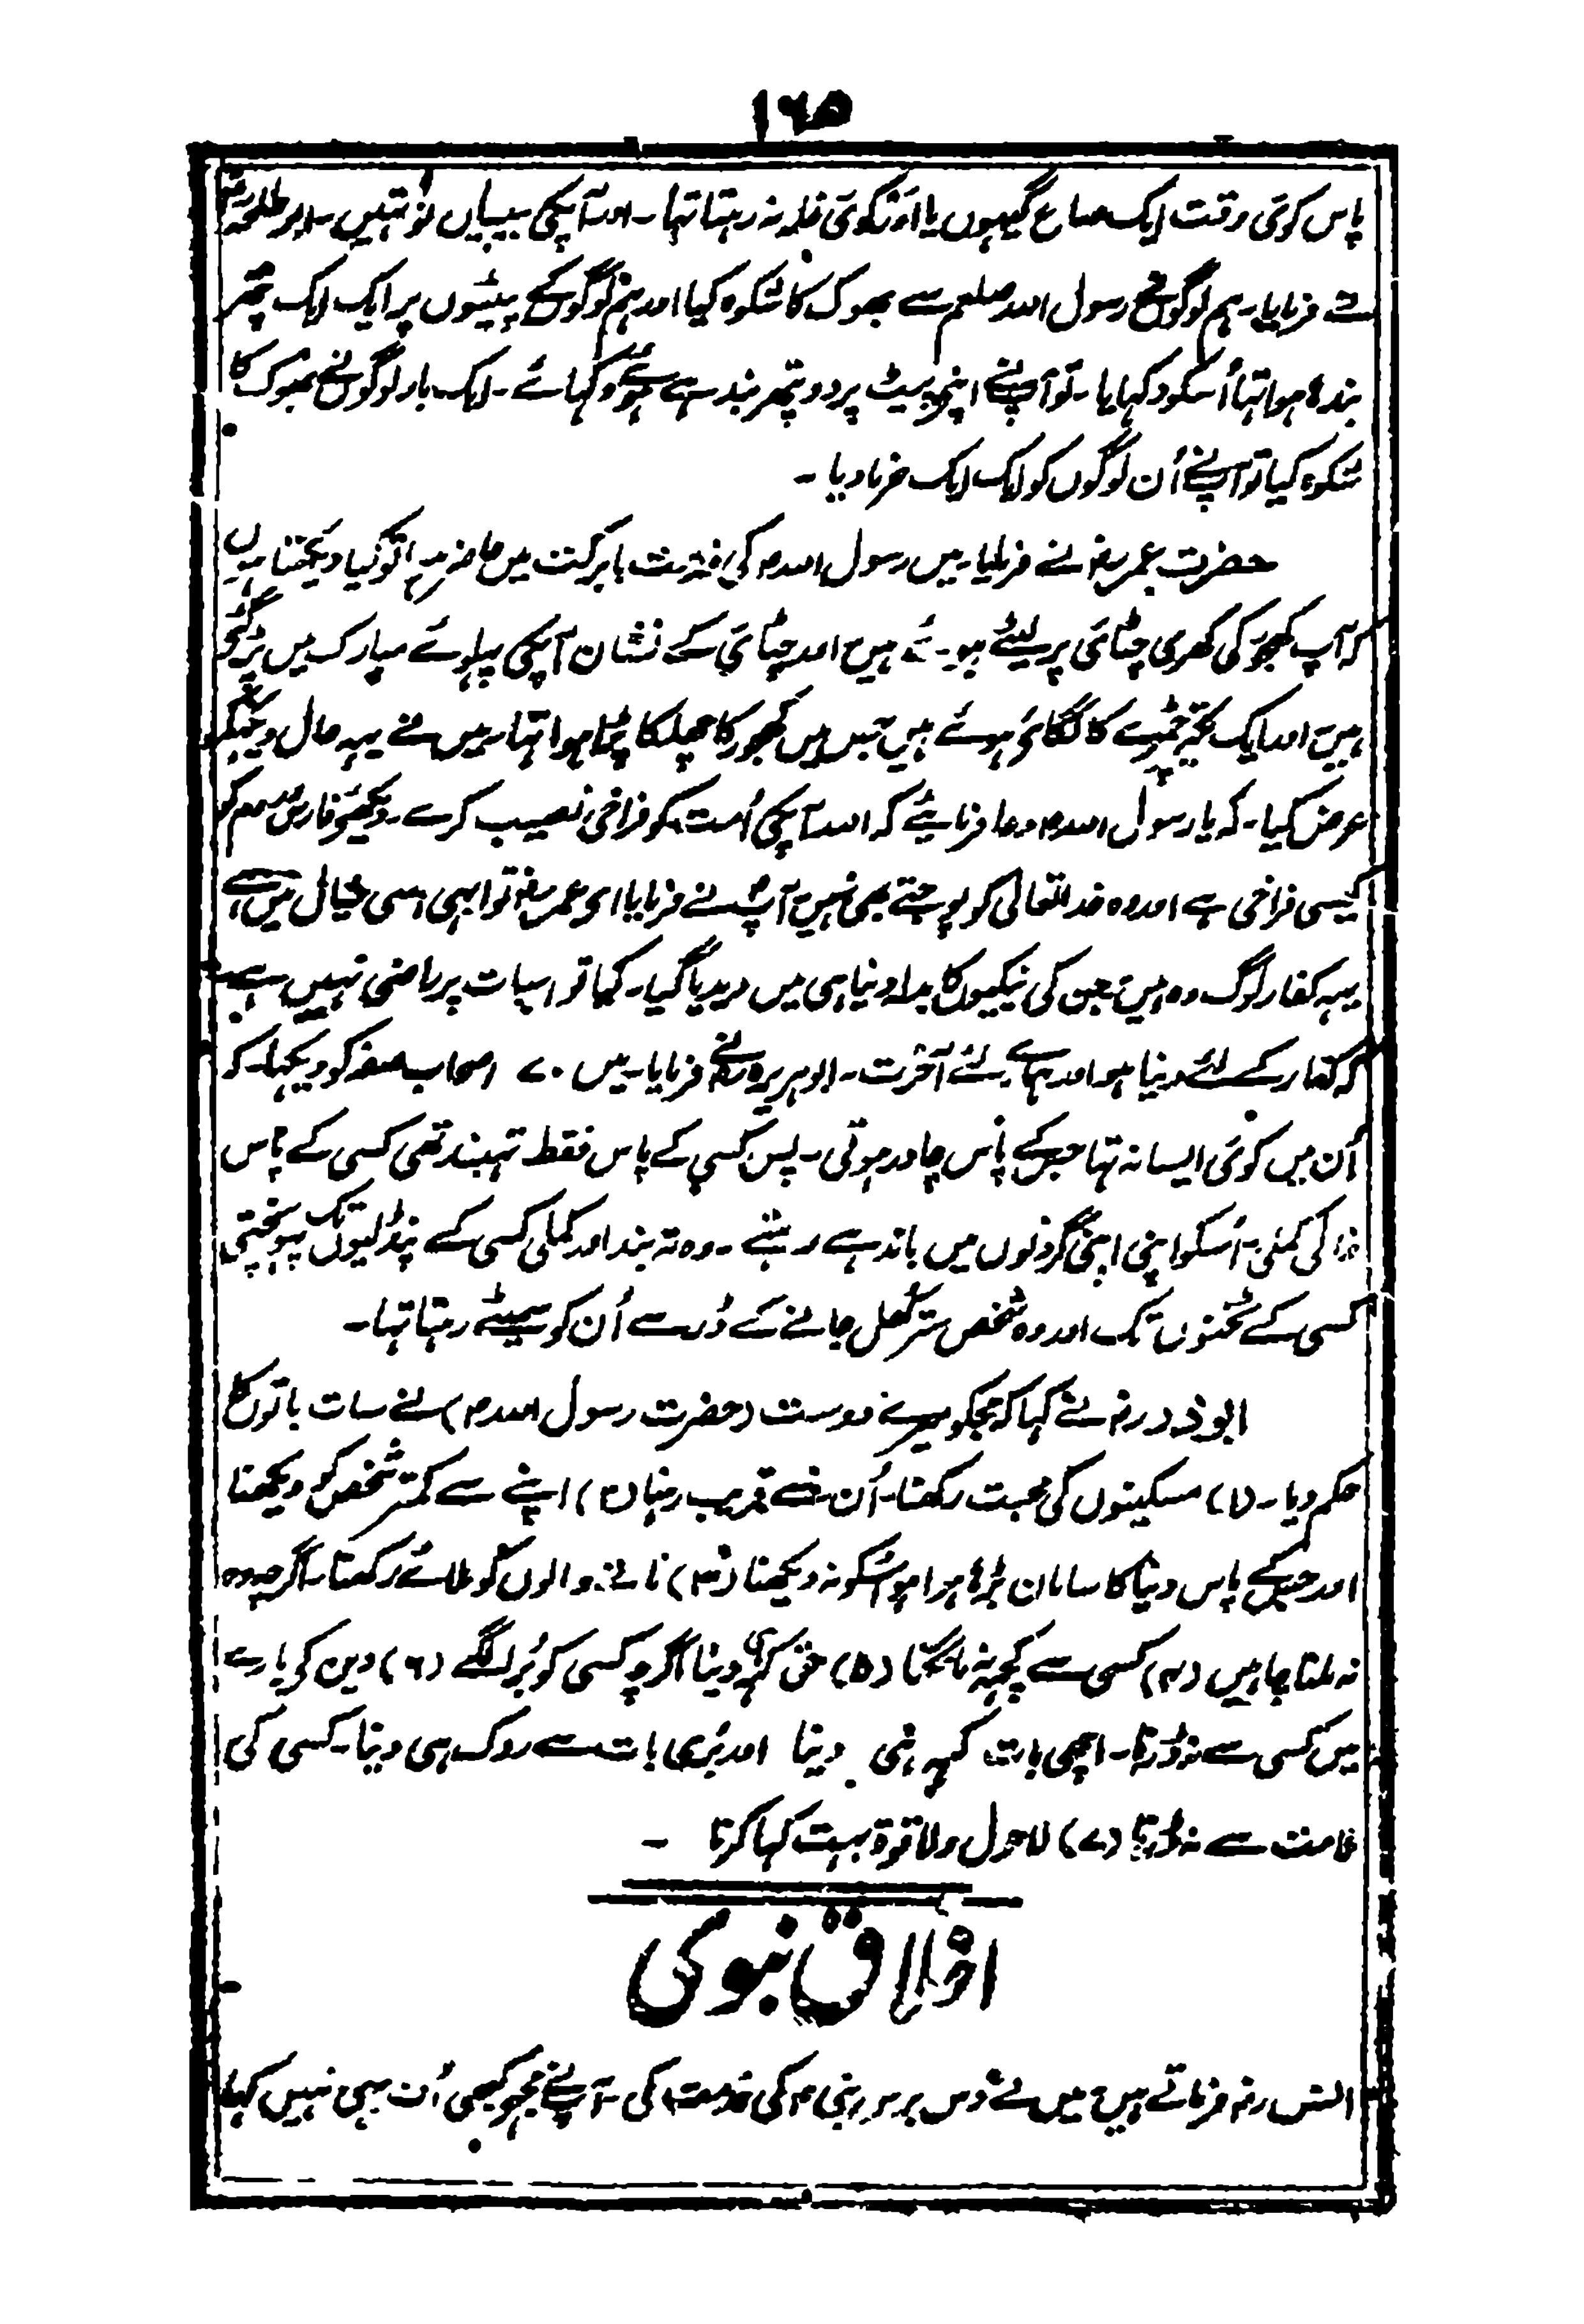 ۱۶۵
پاس کوئی وقت ایک صاع گیہوں یا اور کوئی غلہ نہ رہتا تہا۔ اور آپکی بیبیاں نو تہیں۔ ابو طلحہ رض
نے فرمایا۔ ہم لوگوں نے رسول اللہ صلعم سے بھوک کا شکوہ کیا اور ہم لوگوں کے پیٹوں پر ایک ایک پتھر
بندھا ہوا تہا اُسکو دکہایا۔ تو آپنے اپنی پیٹ پر دو پتھر بندہے ہوئے دکہائے۔ ایک بار لوگوں نے بھوک کا
شکوہ کیا تو آپنے اُن لوگوں کو ایک ایک خرما دیا۔
حضرت عمر رض نے فرمایا۔ میں رسول اللہ ص کی خدمت بابرکت میں حاضر ہوا تو کیا دیکھتا ہوں
کہ آپ کھجور کی کھری چٹائی پر لیٹے ہوئے ہیں اور چٹائی کے نشان آپکی پہلوئے مبارک میں پڑ گئے
ہیں اور ایک تکیہ چمڑے کا لگائے ہوئے ہیں جس میں کھجور کا چھلکا بھرا ہوا تہا۔ میں نے یہہ حال دیکھکر
عرض کیا۔ کہ یا رسول اللہ ص دعا فرمایئے کہ اللہ آپکی اُمت کو فراخی نصیب کرے۔ دیکھئے فارس روم کو
کیسی فراخی ہے اور وہ خدا تعالی کو پوجتے بھی نہیں آپ ص نے فرمایا ای عمر رض تو ابہی اسی خیال میں ہے
یہہ کفار لوگ وہ ہیں جن کی نیکیوں کا بدلہ دنیا ہی میں دیدیا گیا۔ کیا تو اسبات پر راضی نہیں ہے
کہ کفار کے لئے دنیا ہو اور ہمارے لئے آخرت۔ ابو ہریرہ رض نے فرمایا۔ میں ۷۰ اصحاب صفہ کو دیکہا۔ کہ
اُن میں کوئی ایسا نہ تہا جس کے پاس چادر ہوتی۔ پس کسی کے پاس فقط تہبند تھی کسی کے پاس
کی کملی۔ اُسکو اپنی اپنی گردنوں میں باندہے رہتے۔ وہ تہ بند اور کملی کسی کے پنڈلیوں تک پہونچتی
کسی کے ٹخنوں تک اور وہ شخص ستر کھل جانے کے ڈر سے اُن کو سمیٹے رہتا تہا۔
ابوذر رض نے کہا کہ مجکو میرے دوست (حضرت رسول اللہ ص) نے سات باتوں کا
حکم دیا۔ (۱) مسکینوں کی محبت رکھنا۔ اُن سے قریب رہنا (۲) اپنے سے کمتر شخص کو دیکھنا
اور جس کے پاس دنیا کا سامان بڑھا ہوا ہو اُسکو نہ دیکھنا (۳) ناتے والوں کو ملائے رکھنا۔ اگرچہ وہ
نہ ملنا چاہیں (۴) کسی سے کچہہ نہ مانگنا (۵) حق کہہ دینا اگرچہ کسی کو بُرا لگے (۶) دین کو بارے
میں کسی سے نہ ڈرنا۔ اچھی بات کہہ ہی دینا اور بُری بات سے روک ہی دینا۔ کسی کی
ملامت سے نہ ڈرنا (۷) لاحول ولا قوۃ بہت کہا کرنا۔
اخلاق نبوی
انس رض فرماتے ہیں میں نے دس برس نبی ص کی خدمت کی۔ آپنے مجہو کبھی اُف بہی نہیں کہا